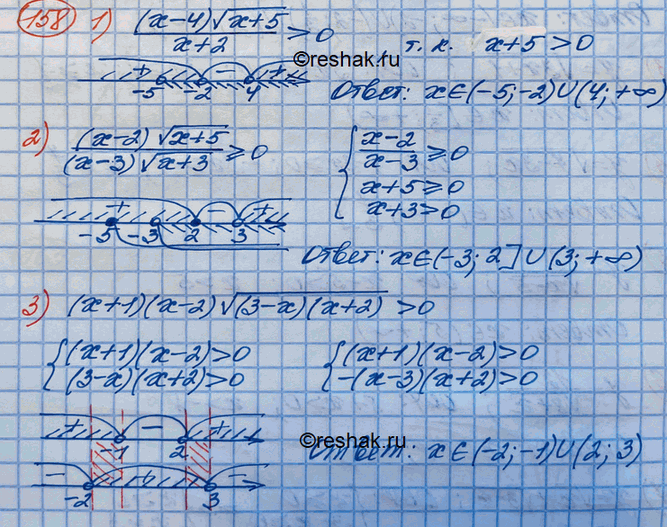 158 1) (x-4)√(x+5) / (x+2) > 0 т. к. x+5 > 0
©reshak.ru
+ - +
-5 -2 4
Ответ: x∈(-5;-2)∪(4;+∞)
2) (x-2)√(x+5) / (x-3)√(x+3) ≥ 0
{ (x-2)/(x-3) ≥ 0
x+5 ≥ 0
x+3 > 0
+ - +
-5 -3 2 3
Ответ: x∈(-3; 2]∪(3;+∞)
3) (x+1)(x-2)√((3-x)(x+2)) > 0
{ (x+1)(x-2)>0 { (x+1)(x-2)>0
(3-x)(x+2)>0 -(x-3)(x+2)>0
+ - +
-1 2
©reshak.ru
Ответ: x∈(-2;-1)∪(2;3)
- + -
-2 3